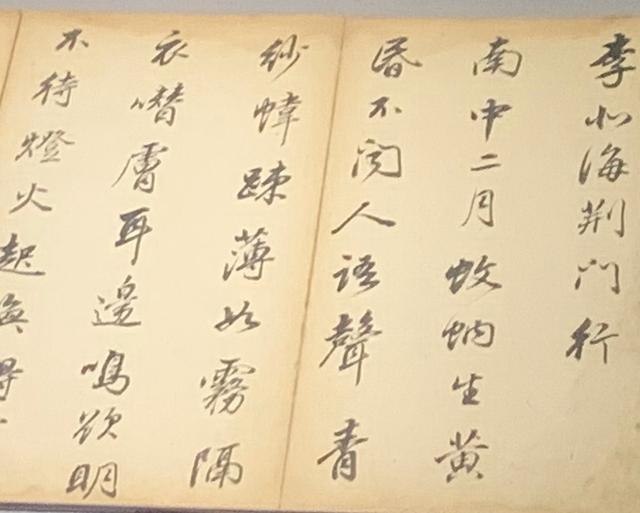 李北海荆門行
南中二月蚊蚋生黄
昏不闻人語聲青
紗幃踈薄如霧隔
衣噆膚耳邊鳴欲明
不待燈火起唤得